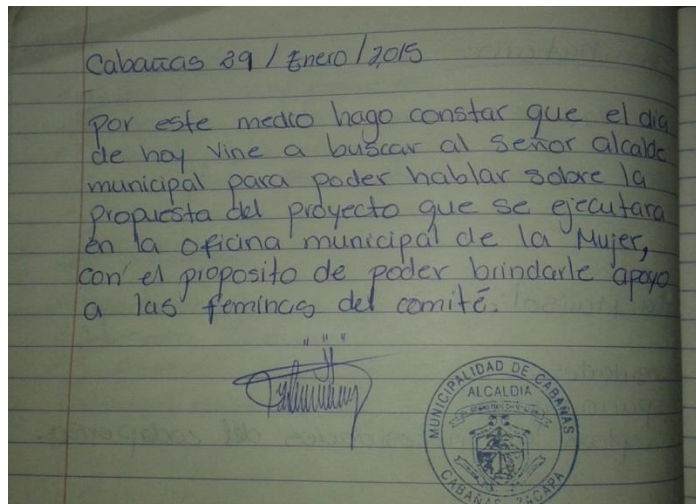 Cabañas 29 / Enero / 2,015
Por este medio hago constar que el dia
de hoy vine a buscar al Señor alcalde
municipal para poder hablar sobre la
propuesta del proyecto que se ejecutara
en la oficina municipal de la Mujer,
con el proposito de poder brindarle apoyo
a las feminas del comité.
MUNICIPALIDAD DE CABAÑAS
ALCALDIA
CABAÑAS ZACAPA